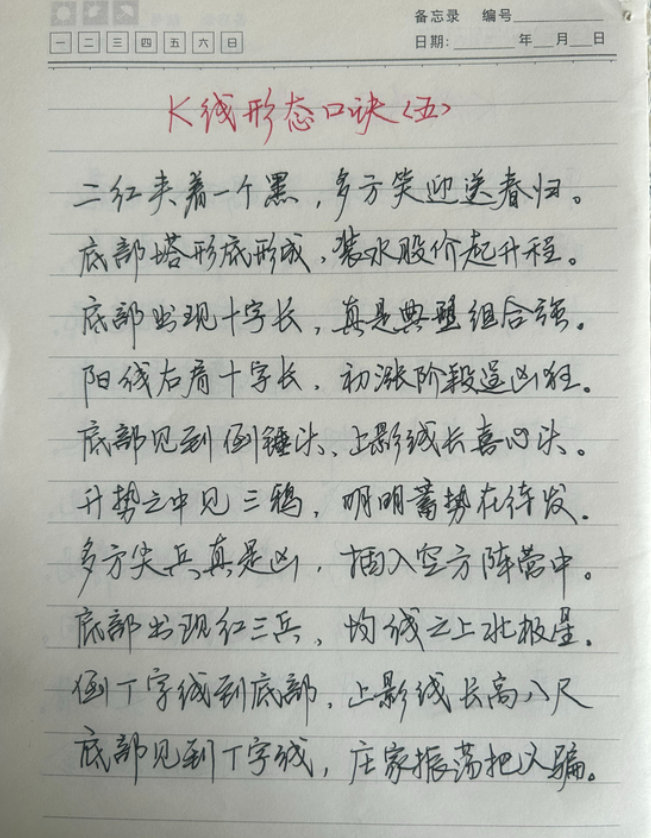 备忘录 编号
一 二 三 四 五 六 日
日期: 年 月 日
K线形态口诀(五)
二红夹着一个黑,多方笑迎送春归。
底部塔形底形成,装水股价起升程。
底部出现十字长,真是典型组合强。
阳线右肩十字长,初涨阶段逞凶狂。
底部见到倒锤头、上影线长喜心头。
升势之中见三鸦,明明蓄势在待发.
多方尖兵真是凶,插入空方阵营中。
底部出现红三兵,均线之上北极星.
倒丁字线到底部,上影线长高八尺
底部见到丁字线,庄家振荡把人骗。